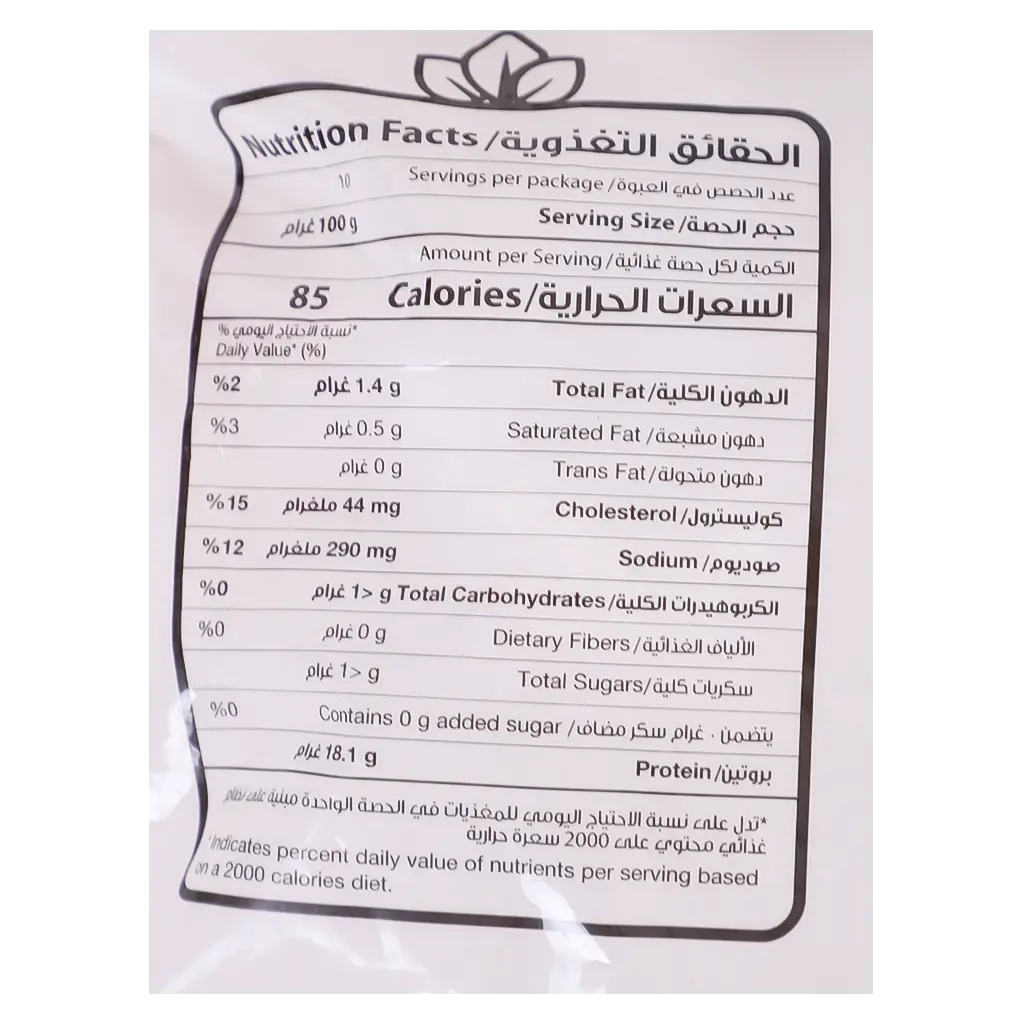 Nutrition Facts/الحقائق التغذوية
10 Servings per package/عدد الحصص في العبوة
100 g غرام Serving Size/حجم الحصة
Amount per Serving/الكمية لكل حصة غذائية
85 Calories/السعرات الحرارية
*نسبة الاحتياج اليومي %
Daily Value* (%)
%2 1.4 g غرام Total Fat/الدهون الكلية
%3 0.5 g غرام Saturated Fat/دهون مشبعة
0 g غرام Trans Fat/دهون متحولة
%15 44 mg ملغرام Cholesterol/كوليسترول
%12 290 mg ملغرام Sodium/صوديوم
%0 1> g غرام Total Carbohydrates/الكربوهيدرات الكلية
%0 0 g غرام Dietary Fibers/الألياف الغذائية
1> g غرام Total Sugars/سكريات كلية
%0 Contains 0 g added sugar/يتضمن ٠ غرام سكر مضاف
18.1 g غرام Protein/بروتين
*تدل على نسبة الاحتياج اليومي للمغذيات في الحصة الواحدة مبنية على نظام
غذائي محتوي على 2000 سعرة حرارية
*Indicates percent daily value of nutrients per serving based
on a 2000 calories diet.